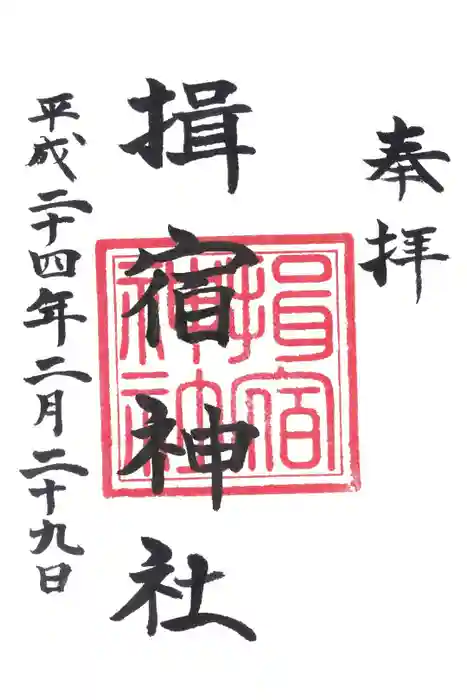 奉拝
揖宿神社
平成二十四年二月二十九日
揖宿
神社